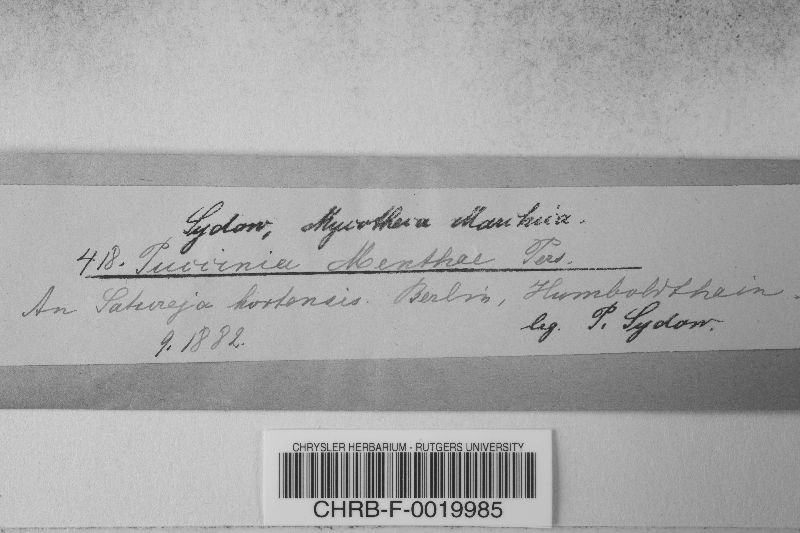 Sydow, Mycotheca Marchica.
418. Puccinia Menthae Pers.
An Satureja hortensis. Berlin, Humboldthain.
9. 1882. leg. P. Sydow.
CHRYSLER HERBARIUM - RUTGERS UNIVERSITY
CHRB-F-0019985